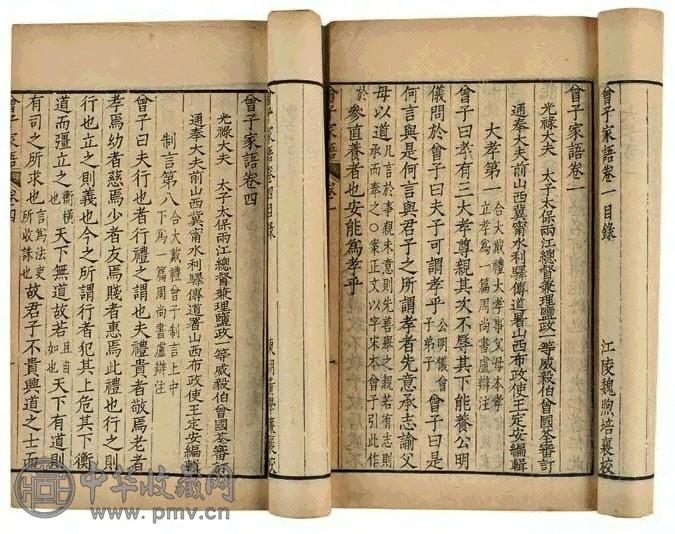 曾子家語卷一目錄
江陵魏煦培襄校
曾子家語卷一
光祿大夫 太子太保兩江總督兼理鹽政一等威毅伯曾國荃審訂
通奉大夫前山西冀甯水利驛傳道署山西布政使王定安編輯
大孝第一 合大戴禮大孝事父母本孝
立孝為一篇周尚書盧辯注
曾子曰孝有三大孝尊親其次不辱其下能養公明
儀問於曾子曰夫子可謂孝乎 公明儀曾子弟子 曾子曰是
何言與是何言與君子之所謂孝者先意承志諭父
母以道 凡言於事親未意則先善舉之親若有志則
承而奉之〇案正文以字宋本曾子引此作
於 參直養者也安能為孝乎
曾子家語 卷一
曾子家語卷四目錄
曾子家語卷四
光祿大夫 太子太保兩江總督兼理鹽政一等威毅伯曾國荃審訂
通奉大夫前山西冀甯水利驛傳道署山西布政使王定安編輯
制言第八 合大戴禮曾子制言上中
下為一篇周尚書盧辯注
曾子曰夫行也者行禮之謂也夫禮貴者敬焉老者
孝焉幼者慈焉少者友焉賤者惠焉此禮也行之則
行也立之則義也今之所謂行者犯其上危其下衡
道而彊立之 衡橫也 天下無道故若 且自如也 天下有道則
有司之所求也 言為法吏所收誅也 故君子不貴興道之士而
曾子家語 卷四
中华收藏网
www.pmv.cn